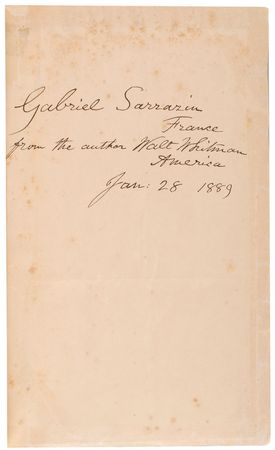 Gabriel Sarrazin
France
from the author Walt Whitman
America
Jan: 28 1889